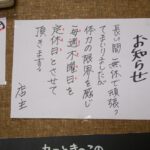 お知らせ
長い間、無休で頑張っ
てまいりましたが
体力の限界を感じ
毎週木曜日を
定休日とさせて
頂きます。
店主